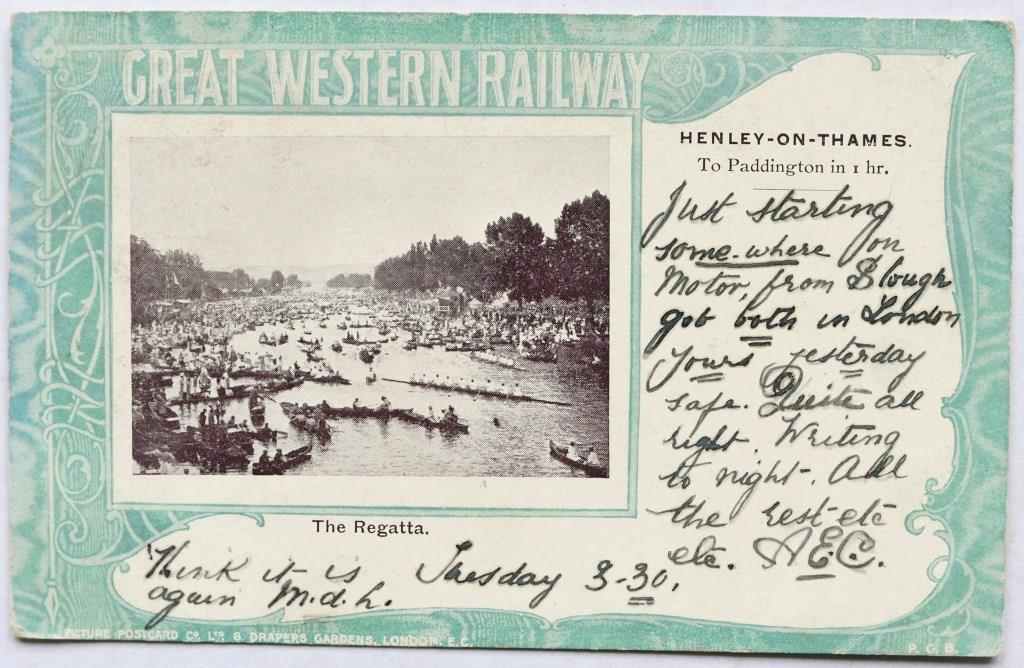 GREAT WESTERN RAILWAY
HENLEY-ON-THAMES.
To Paddington in 1 hr.
Just starting
some-where on
Motor, from Slough
got both in London
Yours yesterday
safe. Quite all
right. Writing
to night. All
the rest etc
etc. A.E.C.
The Regatta.
Think it is Tuesday 3-30.
again M.d.h.
PICTURE POSTCARD Co. LTD 6 DRAPERS GARDENS, LONDON, E.C.
P. G. B.